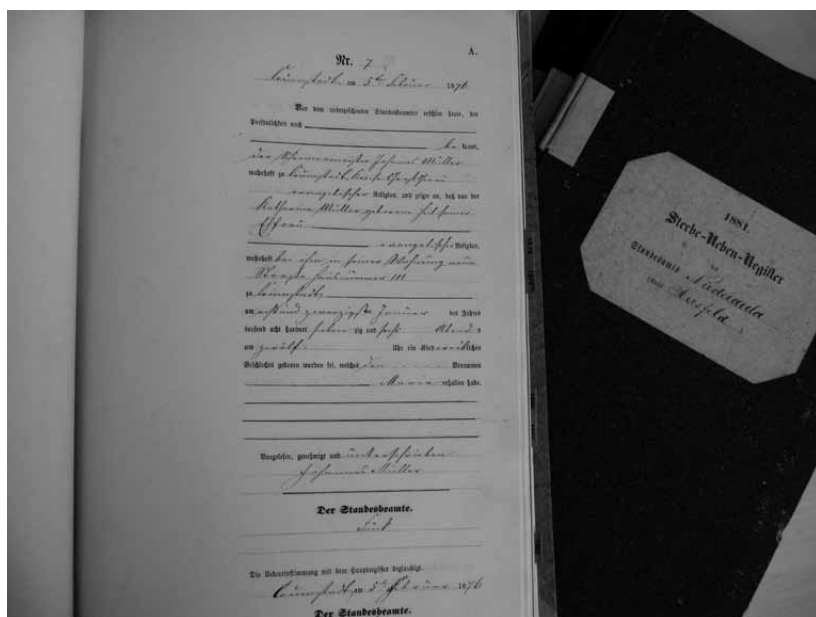 A.
Nr. 7
Crumstadt am 5ten Februar 1876
Vor dem unterzeichneten Standesbeamten erschien heute, der
Persönlichkeit nach
be kannt,
der Johannes Müller
wohnhaft zu Crumstadt Kreis
evangelischer Religion, und zeigte an, daß von der
Katharina Müller geborene seiner
Ehefrau
evangelischer Religion,
wohnhaft bei ihm in seiner Wohnung
Straße Hausnummer 111
zu Crumstadt
am acht und zwanzigsten Januar des Jahres
tausend acht hundert sieben zig und sechs Abend s
um zwölf Uhr ein Kind weiblichen
Geschlechts geboren worden sei, welches den Vornamen
Maria erhalten habe.
Vorgelesen, genehmigt und unterschrieben
Johannes Müller
Der Standesbeamte.
Die Uebereinstimmung mit dem Hauptregister beglaubigt.
Crumstadt, am 5ten Februar 1876
Der Standesbeamte.
1881.
Sterbe-Neben-Register
des
Standesamts Niederaula
Kreis Hersfeld